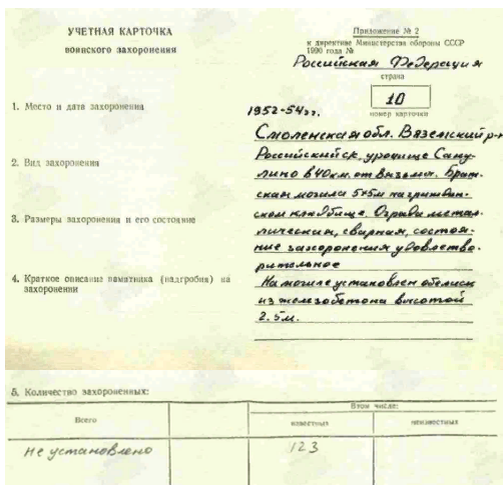 УЧЕТНАЯ КАРТОЧКА
воинского захоронения
Приложение № 2
к директиве Министерства обороны СССР
1990 года №
Российская Федерация
страна
10
номер карточки
1. Место и дата захоронения
1952-54гг.
Смоленская обл. Вяземский р-н
2. Вид захоронения
Российский с/с, урочище Саму-
лино в 40км. от Вязьмы. Брат-
ская могила 5×5м на граждан-
3. Размеры захоронения и его состояние
ском кладбище. Ограда метал-
лическая, сварная, состоя-
ние захоронения удовлетво-
рительное
4. Краткое описание памятника (надгробия) на
захоронении
На могиле установлен обелиск
из железобетона высотой
2.5м.
5. Количество захороненных:
Всего
В том числе:
известных
неизвестных
Не установлено
123